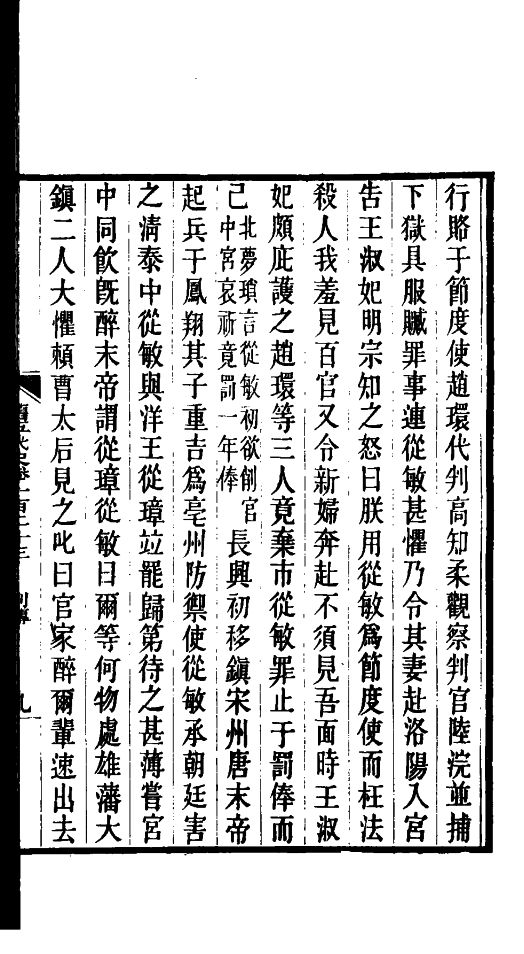 行賂于節度使趙環代判高知柔觀察判官陸浣並捕
下獄具服贓罪事連從敏甚懼乃令其妻赴洛陽入宮
告王淑妃明宗知之怒曰朕用從敏爲節度使而枉法
殺人我羞見百官又令新婦奔赴不須見吾面時王淑
妃頗庇護之趙環等三人竟棄市從敏罪止于罰俸而
已北夢瑣言從敏初欲削官中宮哀祈竟罰一年俸長興初移鎮宋州唐末帝
起兵于鳳翔其子重吉爲亳州防禦使從敏承朝廷害
之淸泰中從敏與洋王從璋竝罷歸第待之甚薄嘗宮
中同飮旣醉末帝謂從璋從敏曰爾等何物處雄藩大
鎮二人大懼賴曹太后見之叱曰官家醉爾輩速出去
列傳
九